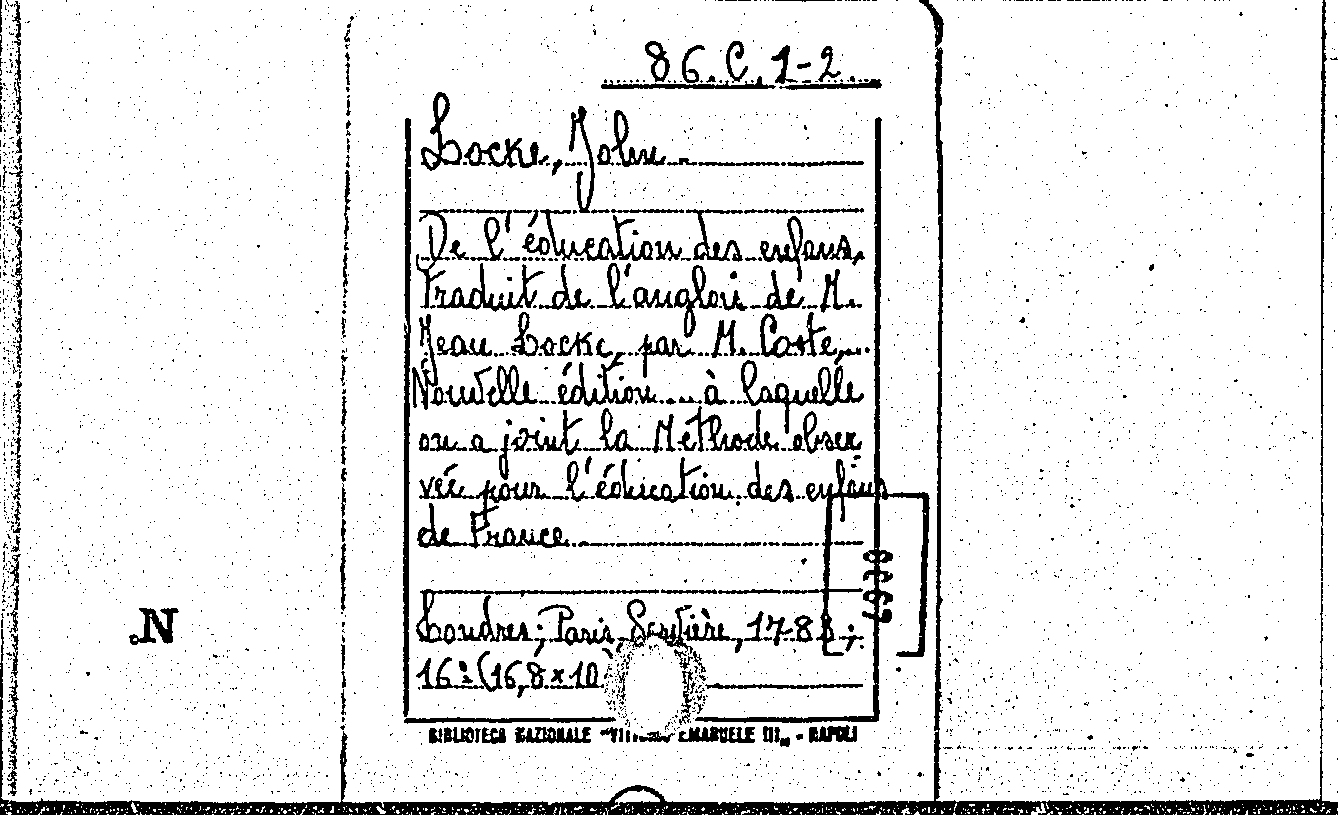 86.C.1-2.
Locke, John.
De l'éducation des enfans,
traduit de l'anglois de M.
Jean Locke, par M. Coste,..
Nouvelle édition... à laquelle
on a joint la Méthode obser
vée pour l'éducation des enfans
de France.
Londres; Paris, Servière,
16º (16,8 x 10
BIBLIOTECA NAZIONALE "VITTORIO EMANUELE III„ - NAPOLI
.N